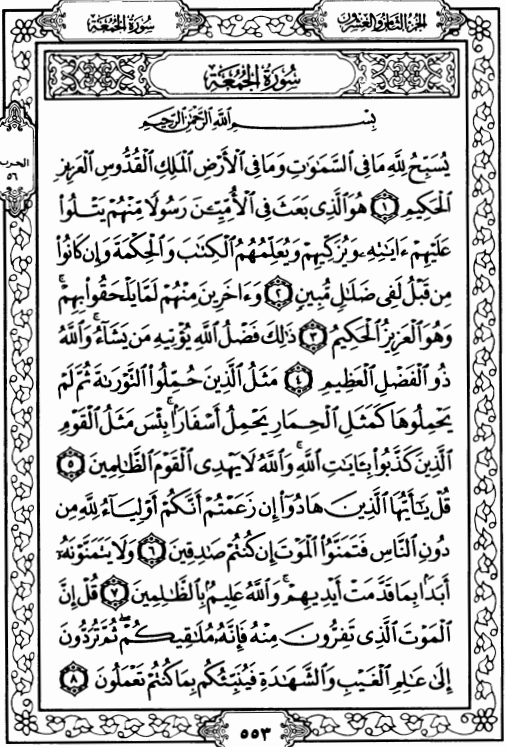 سُورَةُ الجُمُعَةِ
الجُزْءُ الثَّامِنُ وَالعِشْرُونَ
سُورَةُ الجُمُعَةِ
بِسْمِ اللَّهِ الرَّحْمَٰنِ الرَّحِيمِ
الحزب
٥٦
يُسَبِّحُ لِلَّهِ مَا فِي السَّمَٰوَٰتِ وَمَا فِي الْأَرْضِ الْمَلِكِ الْقُدُّوسِ الْعَزِيزِ
الْحَكِيمِ ١ هُوَ الَّذِي بَعَثَ فِي الْأُمِّيِّـۧنَ رَسُولًا مِّنْهُمْ يَتْلُوا
عَلَيْهِمْ ءَايَٰتِهِۦ وَيُزَكِّيهِمْ وَيُعَلِّمُهُمُ الْكِتَٰبَ وَالْحِكْمَةَ وَإِن كَانُوا
مِن قَبْلُ لَفِي ضَلَٰلٍ مُّبِينٍ ٢ وَءَاخَرِينَ مِنْهُمْ لَمَّا يَلْحَقُوا بِهِمْ ۚ
وَهُوَ الْعَزِيزُ الْحَكِيمُ ٣ ذَٰلِكَ فَضْلُ اللَّهِ يُؤْتِيهِ مَن يَشَآءُ ۚ وَاللَّهُ
ذُو الْفَضْلِ الْعَظِيمِ ٤ مَثَلُ الَّذِينَ حُمِّلُوا التَّوْرَىٰةَ ثُمَّ لَمْ
يَحْمِلُوهَا كَمَثَلِ الْحِمَارِ يَحْمِلُ أَسْفَارًا ۚ بِئْسَ مَثَلُ الْقَوْمِ
الَّذِينَ كَذَّبُوا بِـَٔايَٰتِ اللَّهِ ۚ وَاللَّهُ لَا يَهْدِي الْقَوْمَ الظَّٰلِمِينَ ٥
قُلْ يَٰٓأَيُّهَا الَّذِينَ هَادُوٓا إِن زَعَمْتُمْ أَنَّكُمْ أَوْلِيَآءُ لِلَّهِ مِن
دُونِ النَّاسِ فَتَمَنَّوُا الْمَوْتَ إِن كُنتُمْ صَٰدِقِينَ ٦ وَلَا يَتَمَنَّوْنَهُۥٓ
أَبَدًۢا بِمَا قَدَّمَتْ أَيْدِيهِمْ ۚ وَاللَّهُ عَلِيمٌۢ بِالظَّٰلِمِينَ ٧ قُلْ إِنَّ
الْمَوْتَ الَّذِي تَفِرُّونَ مِنْهُ فَإِنَّهُۥ مُلَٰقِيكُمْ ۖ ثُمَّ تُرَدُّونَ
إِلَىٰ عَٰلِمِ الْغَيْبِ وَالشَّهَٰدَةِ فَيُنَبِّئُكُم بِمَا كُنتُمْ تَعْمَلُونَ ٨
٥٥٣